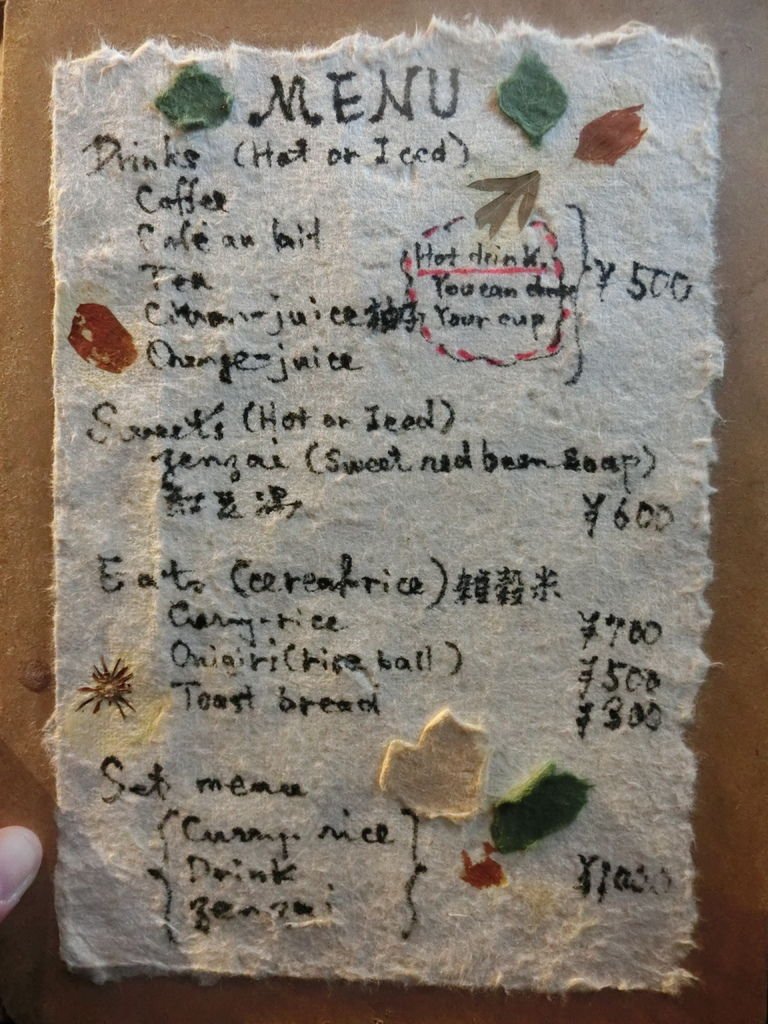 MENU
Drinks (Hot or Iced)
Coffee
Café au lait
Tea
Citron-juice 柚子
Orange-juice
Hot drink.
You can
Your cup
} ¥500
Sweets (Hot or Iced)
Zenzai (Sweet red bean soap)
¥600
Eats (cereal-rice) 雑穀米
Curry-rice ¥700
Onigiri (rice ball) ¥500
Toast bread ¥300
Set menu
{ Curry rice }
Drink
Zenzai
¥1000